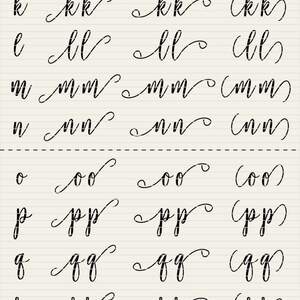 k kk kk (kk)
l ll ll (ll)
m mm mm (mm)
n nn nn (nn)
o oo oo (oo)
p pp pp (pp)
q qq qq (qq)